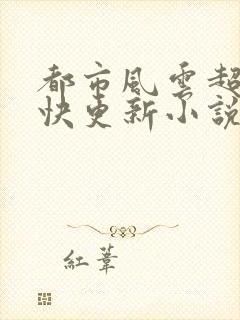 都市風雲超
快更新小說
紅葦